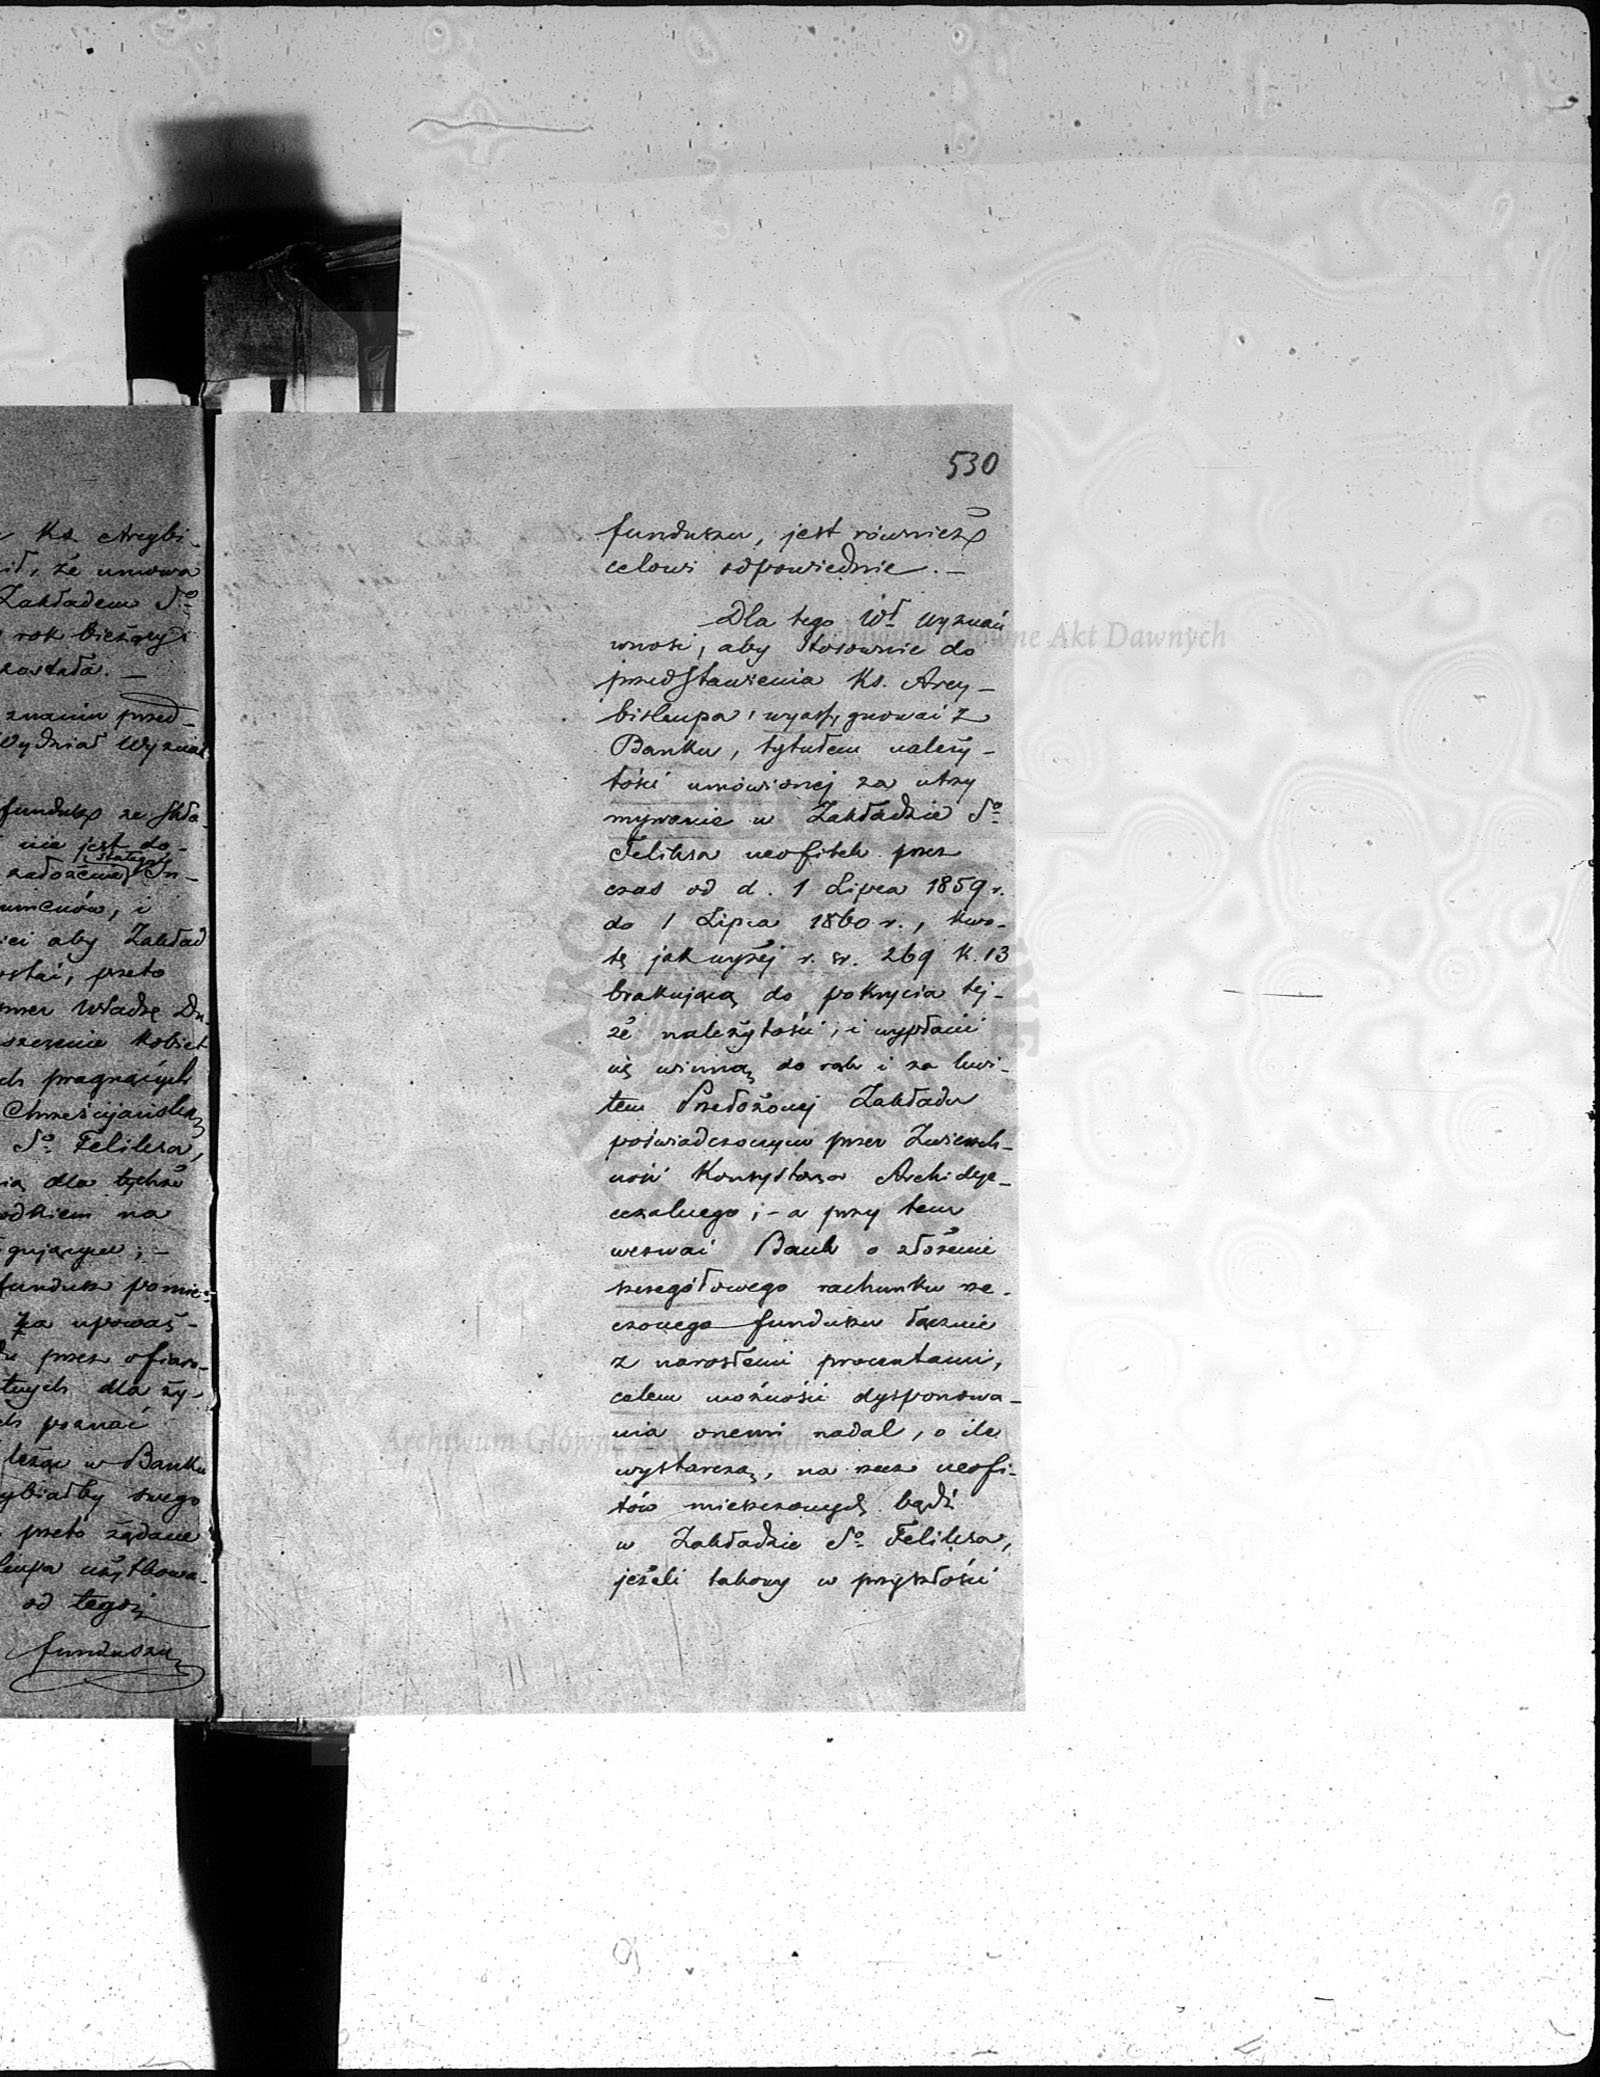 Ks. Arcybi-
że umowa
Zakładem Sº
rok bieżący
została. —
znaniu przed-
Wydział Wyznań
fundusz ze skła-
nie jest do-
stałego
założenia In-
i
aby Zakład
przeto
przez Władzę Du-
kobiet
pragnących
Chrześcijańską
Sº Felixa,
dla tychże
na
fundusz pomie-
za upoważ-
przez ofiaro-
dla ży-
poznać
leżąc w Banku
swego
przeto żądane
użytkowa-
od tegoż
funduszu
530
funduszu, jest również
celowi odpowiednie. —
Dla tego Wł Wyznań
wnosi, aby stosownie do
przedstawienia Ks. Arcy-
biskupa, wyasygnować z
Banku, tytułem należy-
tości umówionej za utrzy
mywanie w Zakładzie Sº
Felixa neofitek przez
czas od d. 1 Lipca 1859 r.
do 1 Lipca 1860 r., kwo-
tę jak wyżej r. sr. 269 k. 13
brakującą do pokrycia tej-
że należytości, i wypłacić
się winną do rąk i za kwi-
tem Przełożonej Zakładu
poświadczonym przez Zwierzch-
ność Konsystorza Archidye-
cezalnego; – a przy tem
wezwać Bank o złożenie
szczegółowego rachunku rze-
czonego funduszu łącznie
z narosłemi procentami,
celem możności dysponowa-
nia onemi nadal, o ile
wystarczą, na rzecz neofi-
tów mieszczonych bądź
w Zakładzie Sº Felixa,
jeżeli takowy w przyszłości
Archiwum Główne Akt Dawnych
Archiwum Główne Akt Dawnych